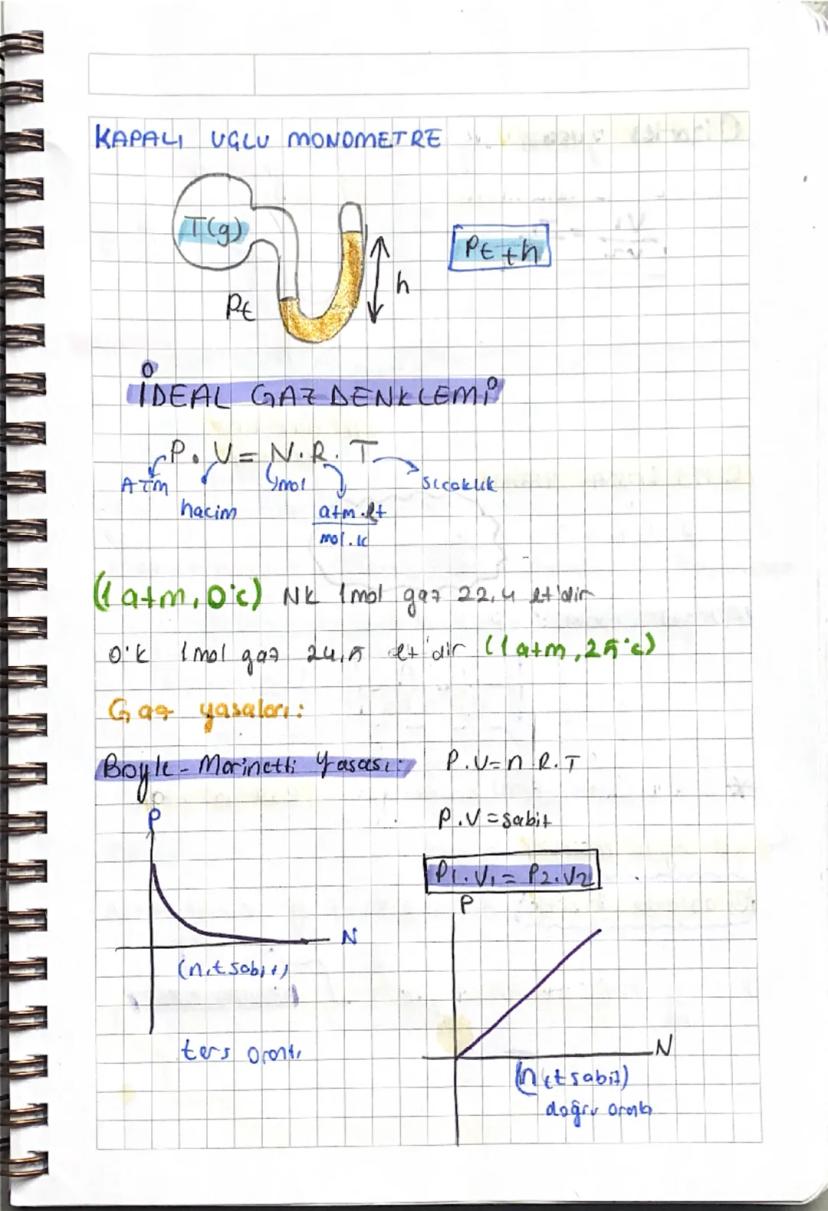 KAPALI UÇLU MONOMETRE
T(g)
Pt+h
h
Pt
İDEAL GAZ DENKLEMİ
P.V=N.R.T
ATM
hacim
mol
atm.lt
mol.k
sıcaklık
(1 atm, 0°c) NK 1mol gaz 22,4 lt'dir
O°K 1mol gaz 24,5 lt'dir (1 atm, 25°c)
Gaz yasaları:
Boyle-Marinetti Yasası: P.V=n.R.T
P.V=sabit
P1.V1=P2.V2
P
N
(n,t sabit)
ters orantı
P
N
(n,t sabit)
doğru orantı